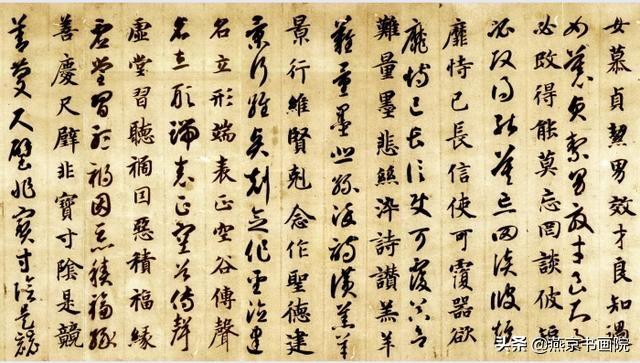 女慕貞絜男效才良知過
女慕貞絜男效才良知過
必改得能莫忘罔談彼短
必改得能莫忘罔談彼短
靡恃己長信使可覆器欲
靡恃己長信使可覆器欲
難量墨悲絲染詩讚羔羊
難量墨悲絲染詩讚羔羊
景行維賢剋念作聖德建
景行維賢剋念作聖德建
名立形端表正空谷傳聲
名立形端表正空谷傳聲
虛堂習聽禍因惡積福緣
虛堂習聽禍因惡積福緣
善慶尺璧非寶寸陰是競
善慶尺璧非寶寸陰是競
头条 @燕京书画院